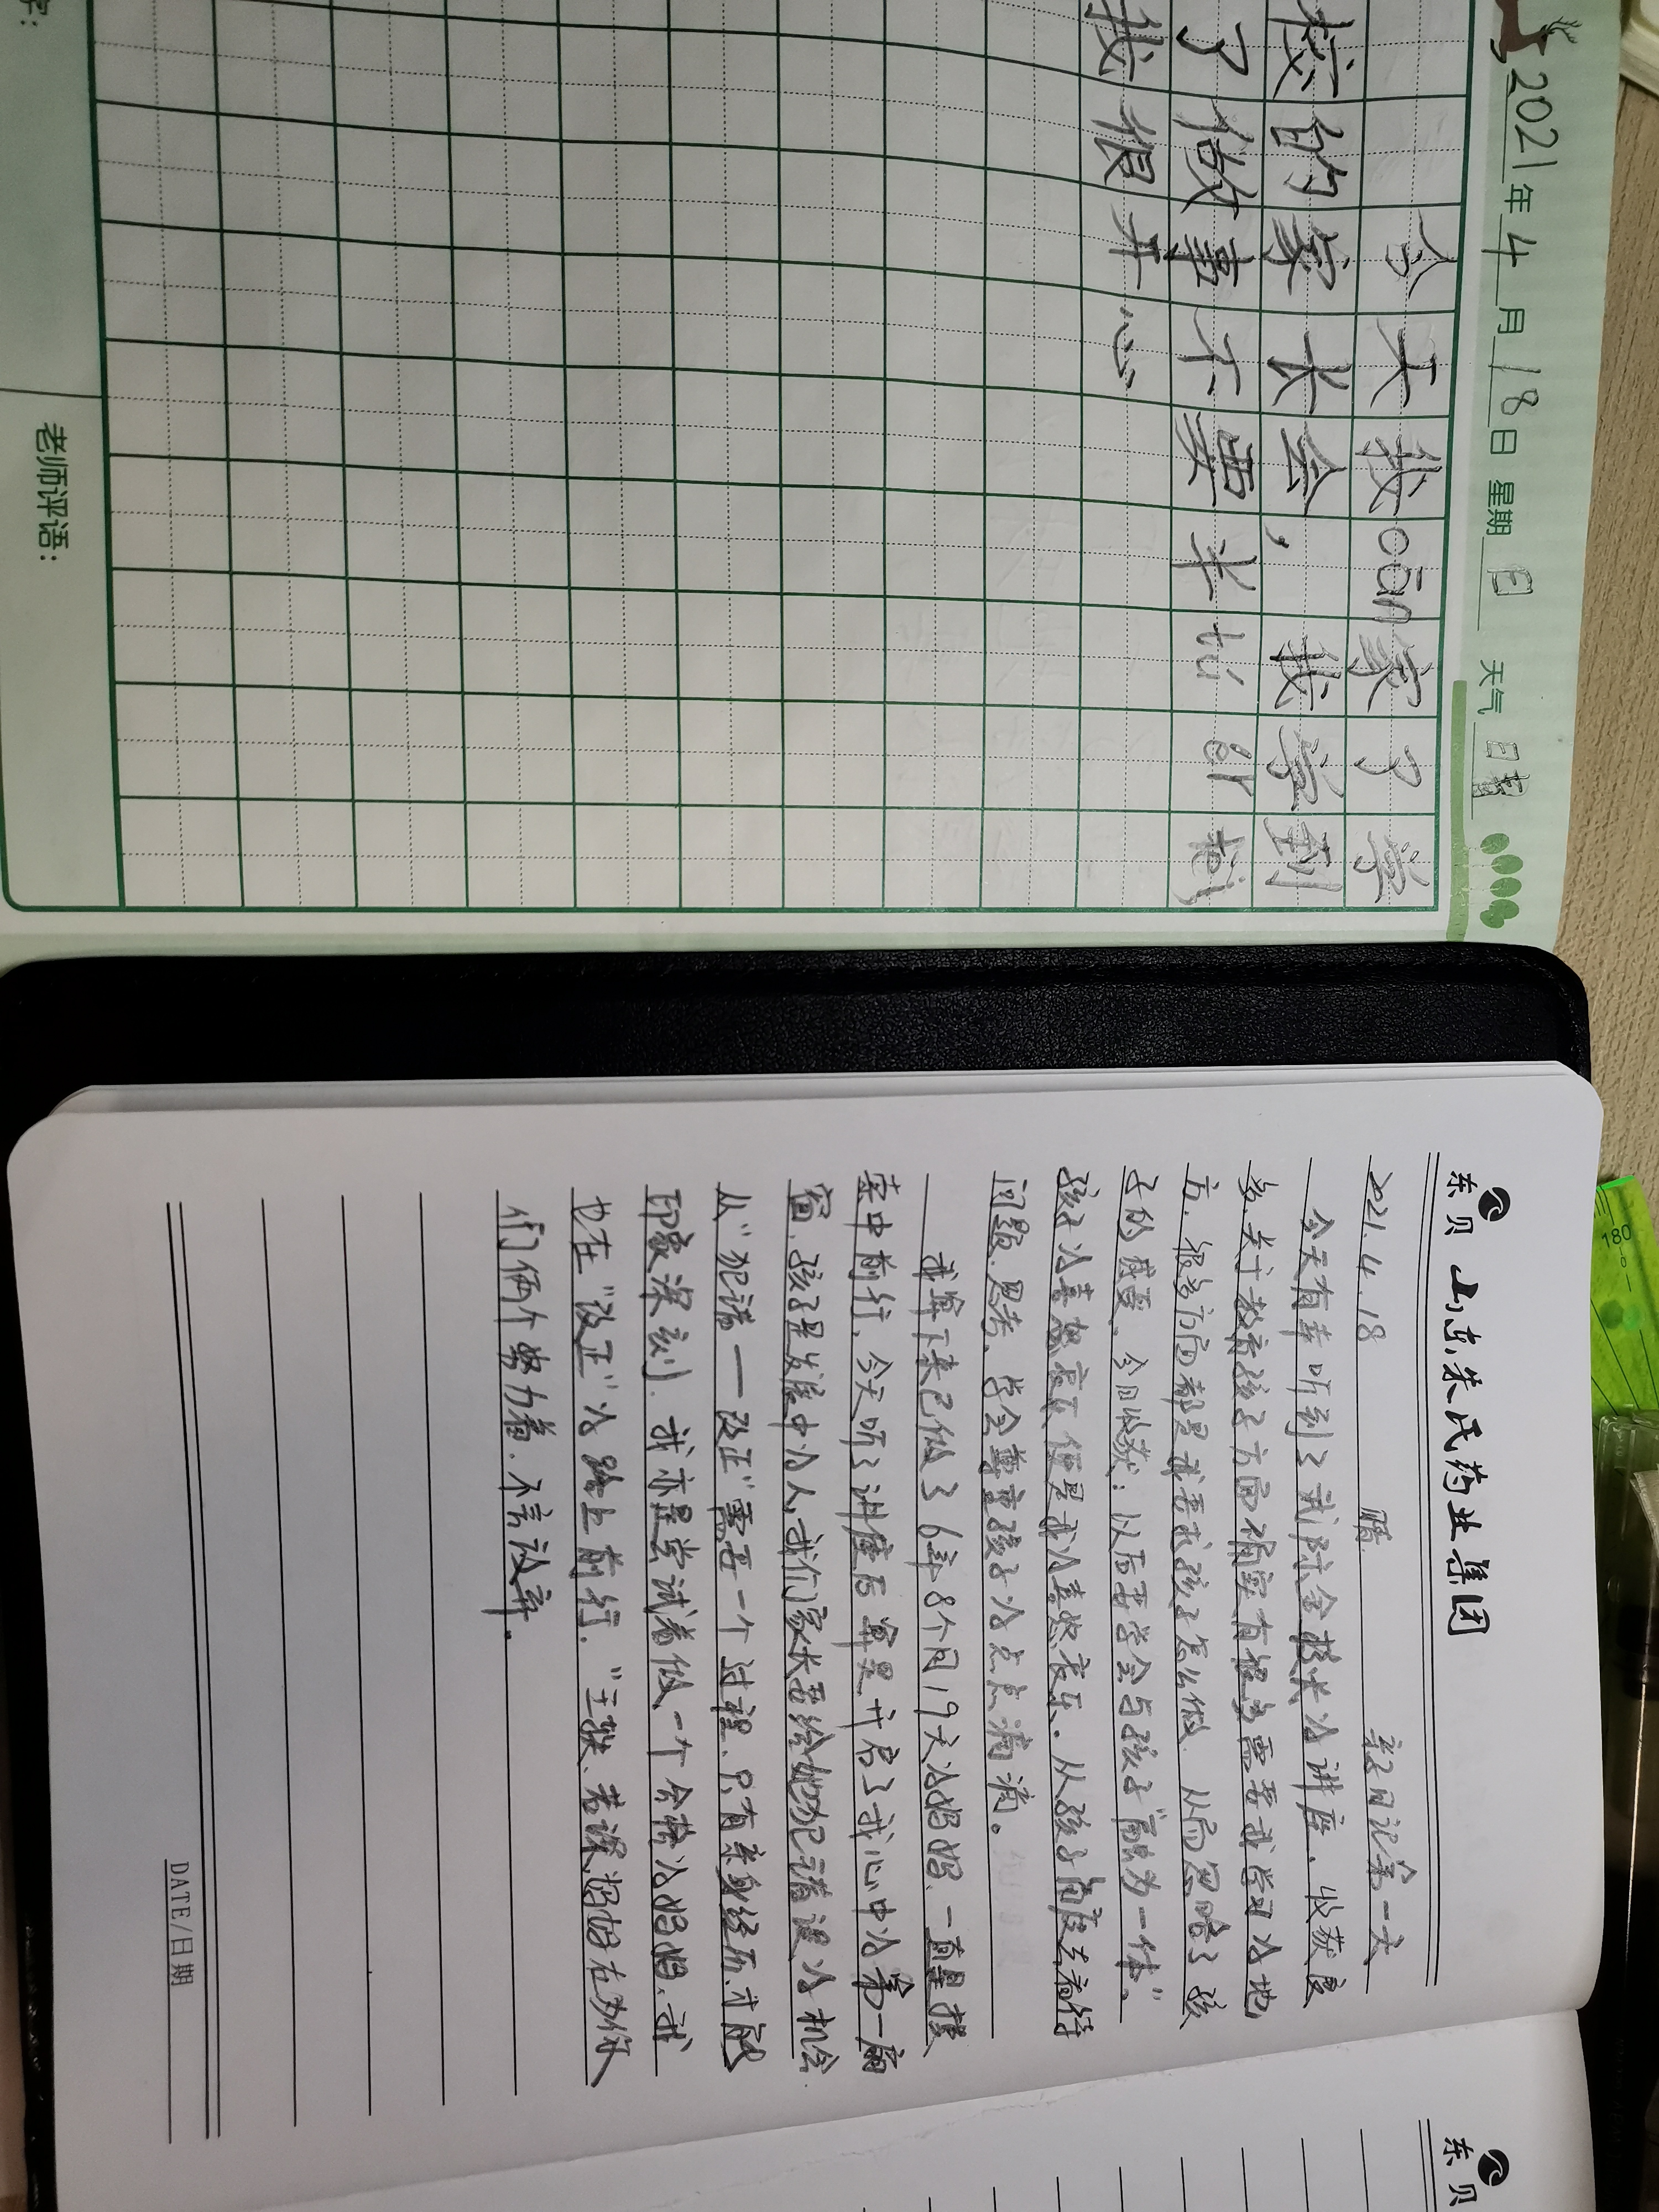 2021年4月18日 星期日 天气 晴
今天我cān家了学
校的家长会，我学到
了做事不要半tú ér
我很开心
老师评语：
东贝 山东朱氏药业集团
2021.4.18 晴 亲子日记第一天
今天有幸听到了武际金校长的讲座，收获良
多，关于教育孩子方面确实有很多需要我学习的地
方，很多方面都是我要求孩子怎么做，从而忽略了孩
子的感受，今日收获：以后要学会与孩子"融为一体"。
孩子的喜怒哀乐便是我的喜怒哀乐。从孩子角度去看待
问题、思考，学会尊重孩子的点点滴滴。
我算下来已做了6年8个月19天的妈妈，一直是摸
索中前行，今天听了讲座后算是开启了我心中的第一扇
窗，孩子是发展中的人，我们家长要给她犯错误的机会
从"犯错——改正"需要一个过程，只有亲身经历，才能
印象深刻，我亦是尝试着做一个合格的妈妈，我
也在"改正"的路上前行，妈妈在为你
们俩个努力着，不言放弃。
DATE/日期
东贝
180